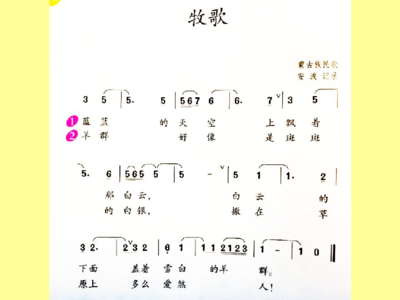 牧歌
蒙古族民歌
安波 记录
3 5 5. 5 567 6 6. 7 3 5
1 蓝蓝 的天空 上飘着
2 羊群 好像 是斑斑
5. 6 1 565 5 - 5 1 1. 2
那白云, 白云 的
的白银, 撒在 草
3 2. 2 332 6 1 1 1 2123 1 - 1 0
下面 盖着 雪白 的羊 群。
原上 多么 爱煞 人!